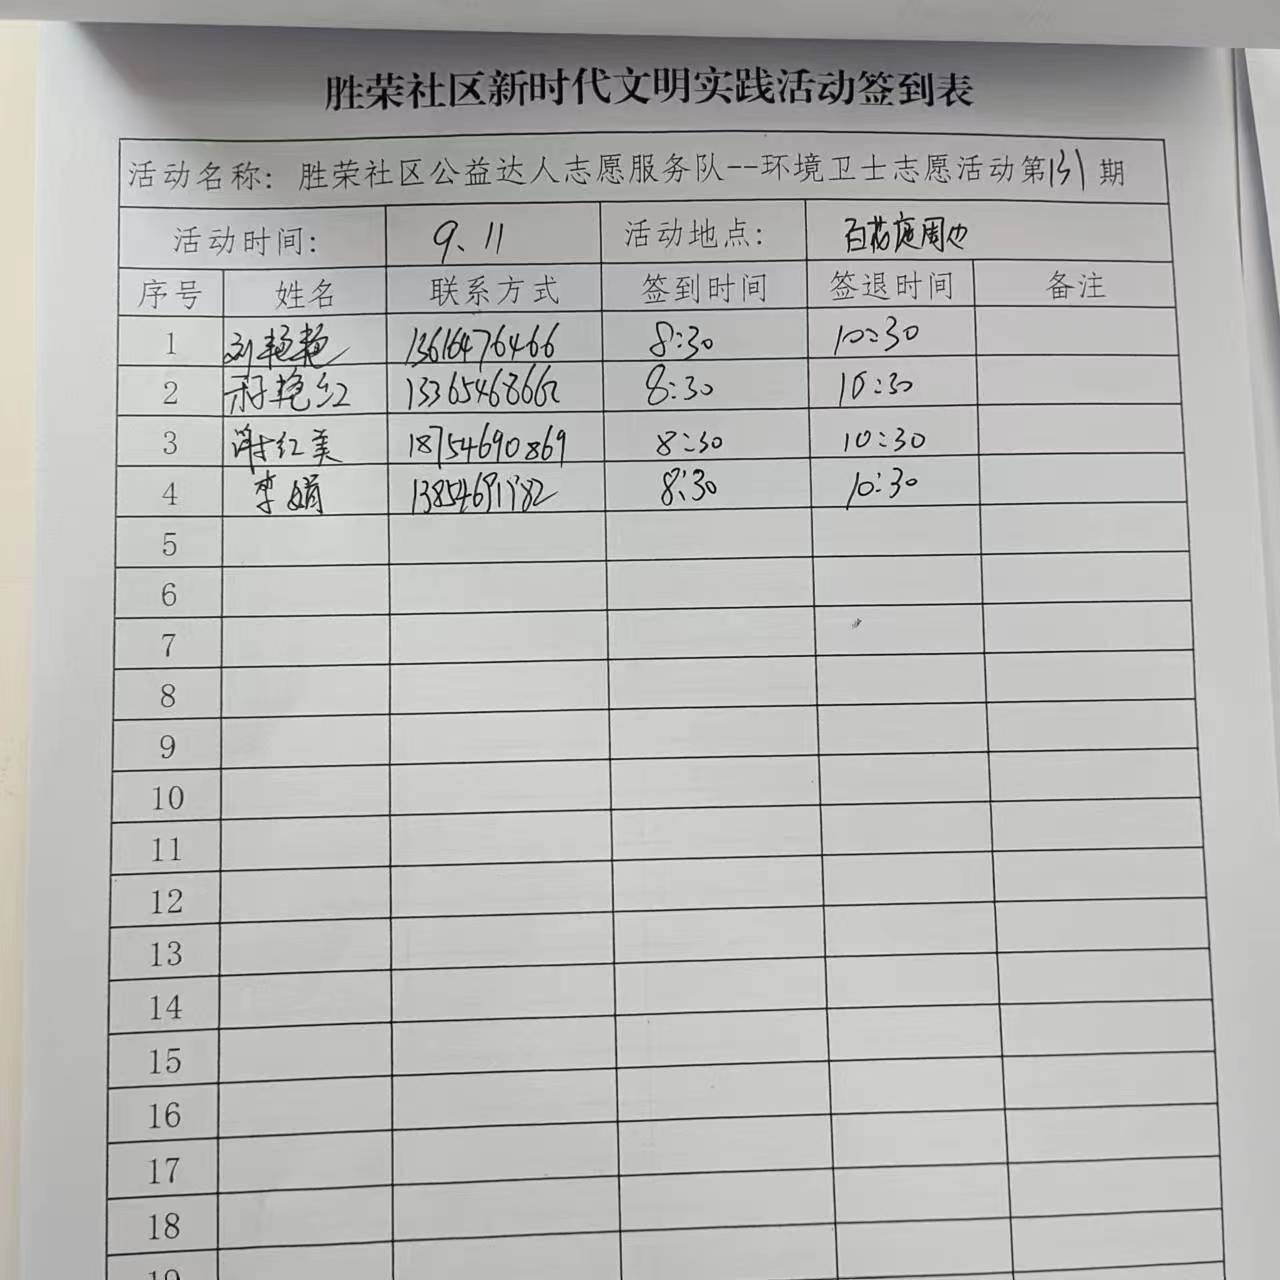 胜荣社区新时代文明实践活动签到表
活动名称：胜荣社区公益达人志愿服务队--环境卫士志愿活动第131期
活动时间： 9、11 活动地点： 百花庭周边
序号 姓名 联系方式 签到时间 签退时间 备注
1 刘艳艳 13616476466 8:30 10:30
2 艳红 13365468662 8:30 10:30
3 谢红美 18754690869 8:30 10:30
4 李娟 8:30 10:30
5
6
7
8
9
10
11
12
13
14
15
16
17
18
19